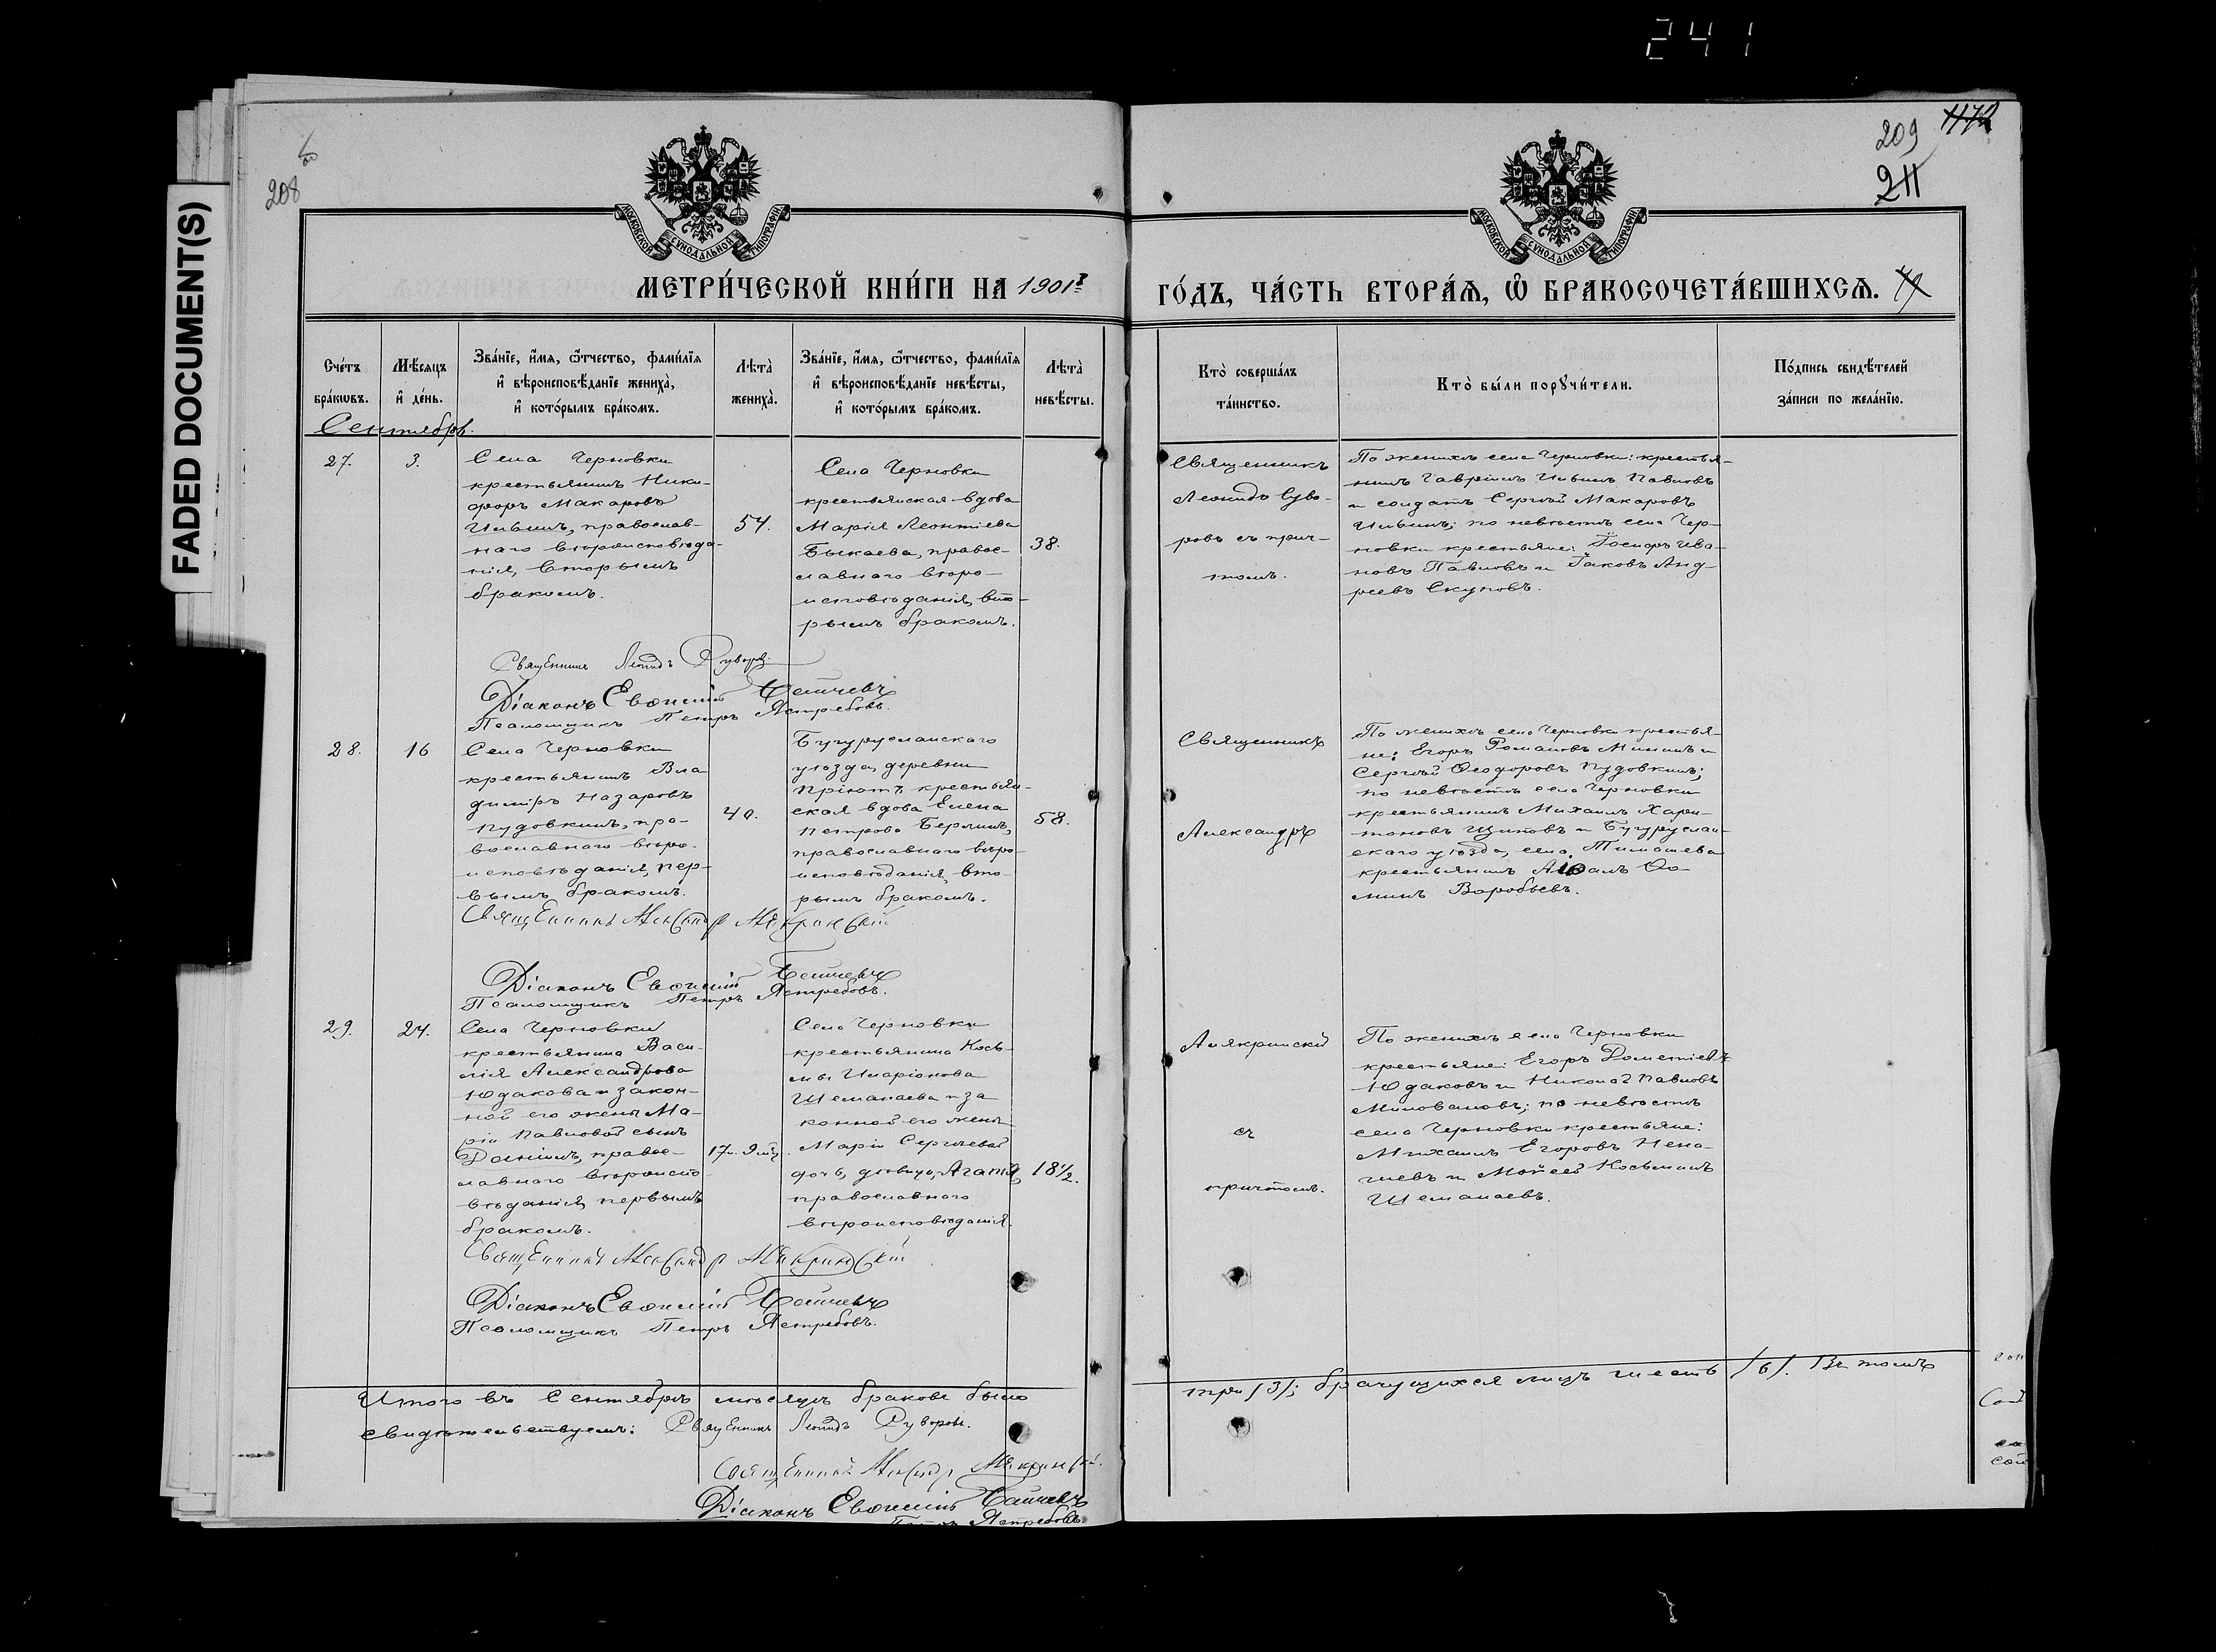 241
FADED DOCUMENT(S)
208
209
211
МОСКОВСКОЙ СУНОДАЛЬНОЙ ТИПОГРАФІИ
МОСКОВСКОЙ СУНОДАЛЬНОЙ ТИПОГРАФІИ
МЕТРИ́ЧЕСКОЙ КНИ́ГИ НА 1901 г.
ГО́ДЪ, ЧА́СТЬ ВТОРА́Ѧ, Ѡ БРАКОСОЧЕТА́ВШИХСѦ.
Сче́тъ бра́кѡвъ.
Мѣ́сѧцъ и де́нь.
Зва́нїе, и́мѧ, ѻ́тчество, фами́лїѧ и вѣроисповѣ́данїе жениха̀, и кото́рымъ бра́комъ.
Лѣта̀ жениха̀.
Зва́нїе, и́мѧ, ѻ́тчество, фами́лїѧ и вѣроисповѣ́данїе невѣ́сты, и кото́рымъ бра́комъ.
Лѣта̀ невѣ́сты.
Кто̀ соверша́лъ та́инство.
Кто̀ бы́ли порꙋчи́тели.
По́дпись свидѣ́телей за́писи по жела́нїю.
Сентябрь.
27.
3.
Села Черновки
крестьянинъ Ники-
форъ Макаровъ
Ильинъ, православ-
наго вѣроисповѣда-
нія, вторымъ
бракомъ.
54.
Села Черновки
крестьянская вдова
Марія Леонтіева
Быкаева, право-
славнаго вѣро-
исповѣданія, вто-
рымъ бракомъ.
38.
Священникъ
Леонидъ Суво-
ровъ съ прич-
томъ.
По женихѣ села Черновки: крестья-
нинъ Гавріилъ Ильинъ Павловъ
и солдатъ Сергѣй Макаровъ
Ильинъ; по невѣстѣ села Чер-
новки крестьяне: Іосифъ Ива-
новъ Павловъ и Іаковъ Анд-
реевъ Скуповъ.
Священникъ Леонидъ Суворовъ
Діаконъ Евѳимій
Псаломщикъ Петръ Ястребовъ.
28.
16
Села Черновки
крестьянинъ Вла
диміръ Назаровъ
Пудовкинъ, пра-
вославнаго вѣро-
исповѣданія, пер-
вымъ бракомъ.
40.
Бугурусланскаго
уѣзда, деревни
Пріютъ крестьян-
ская вдова Елена
Петрова Берлинъ,
православнаго вѣро-
исповѣданія, вто-
рымъ бракомъ.
58.
Священникъ
Александръ
По женихѣ села Черновки крестья-
не: Егоръ Романовъ Мининъ и
Сергѣй Ѳеодоровъ Пудовкинъ;
по невѣстѣ села Черновки
крестьянинъ Михаилъ Хари-
тоновъ Щиповъ и Бугуруслан-
скаго уѣзда, села Тимашева
крестьянинъ Адамъ Ѳо-
минъ Воробьевъ.
Священникъ Александръ Аля­кринскій
Діаконъ Евѳимій
Псаломщикъ Петръ Ястребовъ.
29.
24.
Села Черновки
крестьянина Васи-
лія Александрова
Юдакова и закон-
ной его жены Ма-
ріи Павловой сынъ
Даніилъ, право-
славнаго вѣроиспо-
вѣданія, первымъ
бракомъ.
Села Черновки
крестьянина Кось-
мы Иларіонова
Шеманаева и за
конной его жены
Маріи Сергѣевой
дочь, дѣвица, Агапія,
православнаго
вѣроисповѣданія.
18½.
Алякринскій
съ
причтомъ.
По женихѣ села Черновки
крестьяне: Егоръ Дометіевъ
Юдаковъ и Николай Павловъ
Миловановъ; по невѣстѣ
села Черновки крестьяне:
Михаилъ Егоровъ Нена-
шевъ и Моисей Косьминъ
Шеманаевъ.
Священникъ Александръ Алякринскій
Діаконъ Евѳимій
Псаломщикъ Петръ Ястребовъ.
Итого въ Сентябрѣ мѣсяцѣ браковъ было три /3/; брачущихся лицъ шесть /6/. Въ томъ
свидѣтельствуемъ: Священникъ Леонидъ Суворовъ.
Священникъ Александръ Алякринскій.
Діаконъ Евѳимій
Ястребовъ